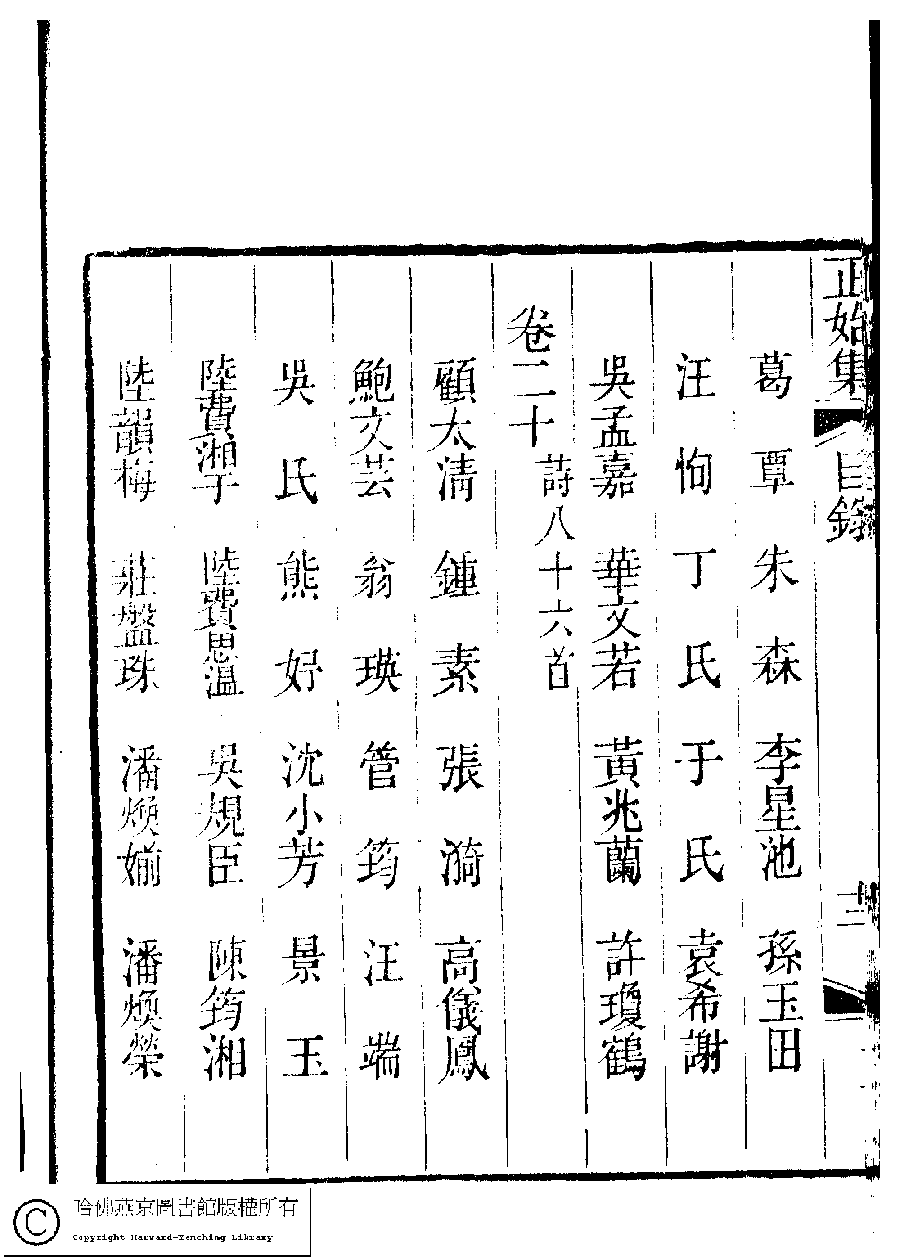 正始集 目錄 十二
葛覃 朱森 李星池 孫玉田
汪恂 丁氏 于氏 袁希謝
吳孟嘉 華文若 黃兆蘭 許瓊鶴
卷二十 詩八十六首
顧太清 鍾素 張漪 高儀鳳
鮑文芸 翁瑛 管筠 汪端
吳氏 熊好 沈小芳 景玉
陸費湘于 陸費思溫 吳規臣 陳筠湘
陸韻梅 莊盤珠 潘煥媊 潘煥榮
哈佛燕京圖書館版權所有
Copyright Harvard-Yenching Library